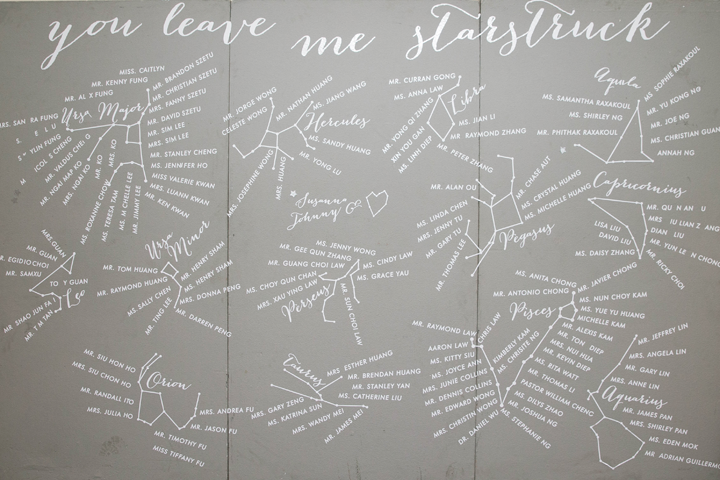 you leave me starstruck
MISS. CAITLYH
MR. KENNY FUNG
MR. AL X FUNG
Ursa Major
MRS. SAN RA FUNG
MR. BRANDON SZETU
MR. CHRISTIAN SZETU
MRS. FANNY SZETU
MR. DAVID SZETU
MR. SIM LEE
MRS. SIM LEE
MR. STANLEY CHENG
MS. JENNIFER HO
MISS VALERIE KWAN
MRS. LUANN KWAN
MR. KEN KWAN
MR. JIMMY LEE
MS. M CHELLE LEE
MS. TERESA TAM
MS. ROXANNE CHOW
MR. KO
MRS. KO
MR. JORGE WONG
CELESTE WONG
MR. NATHAN HUANG
MS. JIANG WANG
Hercules
MS. SANDY HUANG
MR. TONG LU
MRS. HUANG
MRS. JOSEPHINE WONG
MR. CURRAN GONG
MS. ANNA LAW
Libra
MR. YONG QI ZHANG
XIN YOU GAN
MS. LINH DIEP
MS. JIAN LI
MR. RAYMOND ZHANG
MR. PETER ZHANG
Aquila
MS. SOPHIE RAXAKOUL
MS. SAMANTHA RAXAKOUL
MR. YU KONG NG
MS. SHIRLEY NG
MR. JOE NG
MR. PHITHAK RAXAKOUL
MS. CHRISTIAN GUAN
ANNAH NG
Susanna
Johnny Co.
MR. ALAN OU
MS. LINDA CHEN
MRS. JENNY TU
MR. GARY TU
MR. THOMAS LEE
MR. CHASE AUT
MS. CRYSTAL HUANG
MS. MICHELLE HUANG
Pegasus
Capricornius
LISA LIU
DAVID LIU
MS. DAISY ZHANG
MR. RICKY CHOI
MRS GUAN
MR. GUAN
MR. EGIDIO CHOI
MR. SAMXU
TO Y GUAN
Leo
MR. SHAO JUN FA
MR. T M TAN
Ursa Minor
MR. TOM HUANG
MR. RAYMOND HUANG
MS. SALLY CHEN
MR. TING
MR. HENRY SHAM
MS. HENRY SHAM
MRS. DONNA PENG
MR. DARREN PENG
MS. JENNY WONG
MR. GEE QUN ZHANG
MR. GUANG CHOI LAW
MS. CHOY QUN CHAN
MRS. XAU YING LAW
Perseus
MS. CINDY LAW
MS. GRACE YAU
MR. SUN CHOI LAW
MS. ANITA CHONG
MR. ANTONIO CHONG
Pisces
MR. JAVIER CHONG
MS. NUN CHOY KAM
MS. YUE YU HUANG
MICHELLE KAM
MR. ALEXIS KAM
MR. TON DIEP
MRS. NUI HUA
MR. KEVIN DIEP
MS. RITA WATT
MR. THOMAZ LI
PASTOR WILLIAM CHENG
MS. DILYS ZHAO
MR. JOSHUA NG
MS. STEPHANIE NG
MR. RAYMOND LAW
MR. CHRIS LAW
AARON LAW
MS. KITTY SIU
MS. JOYCE ANN
MRS. JUHIE COLLINS
MR. DENNIS COLLINS
MR. EDWARD WONG
MRS. CHRISTIN WONG
DR. DANIEL WU
KIMBERLY KAM
MS. CHRISITE NG
MR. JEFFREY LIN
MRS. ANGELA LIN
MR. GARY LIN
MRS. ANNE LIN
Aquarius
MR. JAMES PAN
MRS. SHIRLEY PAN
MS. EDEN MOK
MR ADRIAN GUILLERMO
MR. SIU HON HO
MRS. SIU CHON HO
Orion
MR. RANDALL ITO
MRS. JULIA HO
MRS. ANDREA FU
MR. JASON FU
MR. TIMOTHY FU
MISS TIFFANY FU
Taurus
MRS ESTHER HUANG
MR. BRENDAN HUANG
MR. STANLEY YAN
MS. CATHERINE LIU
MRS. GARY ZENG
MS. KATRINA SUN
MRS. WANDY MEI
MR. JAMES MEI